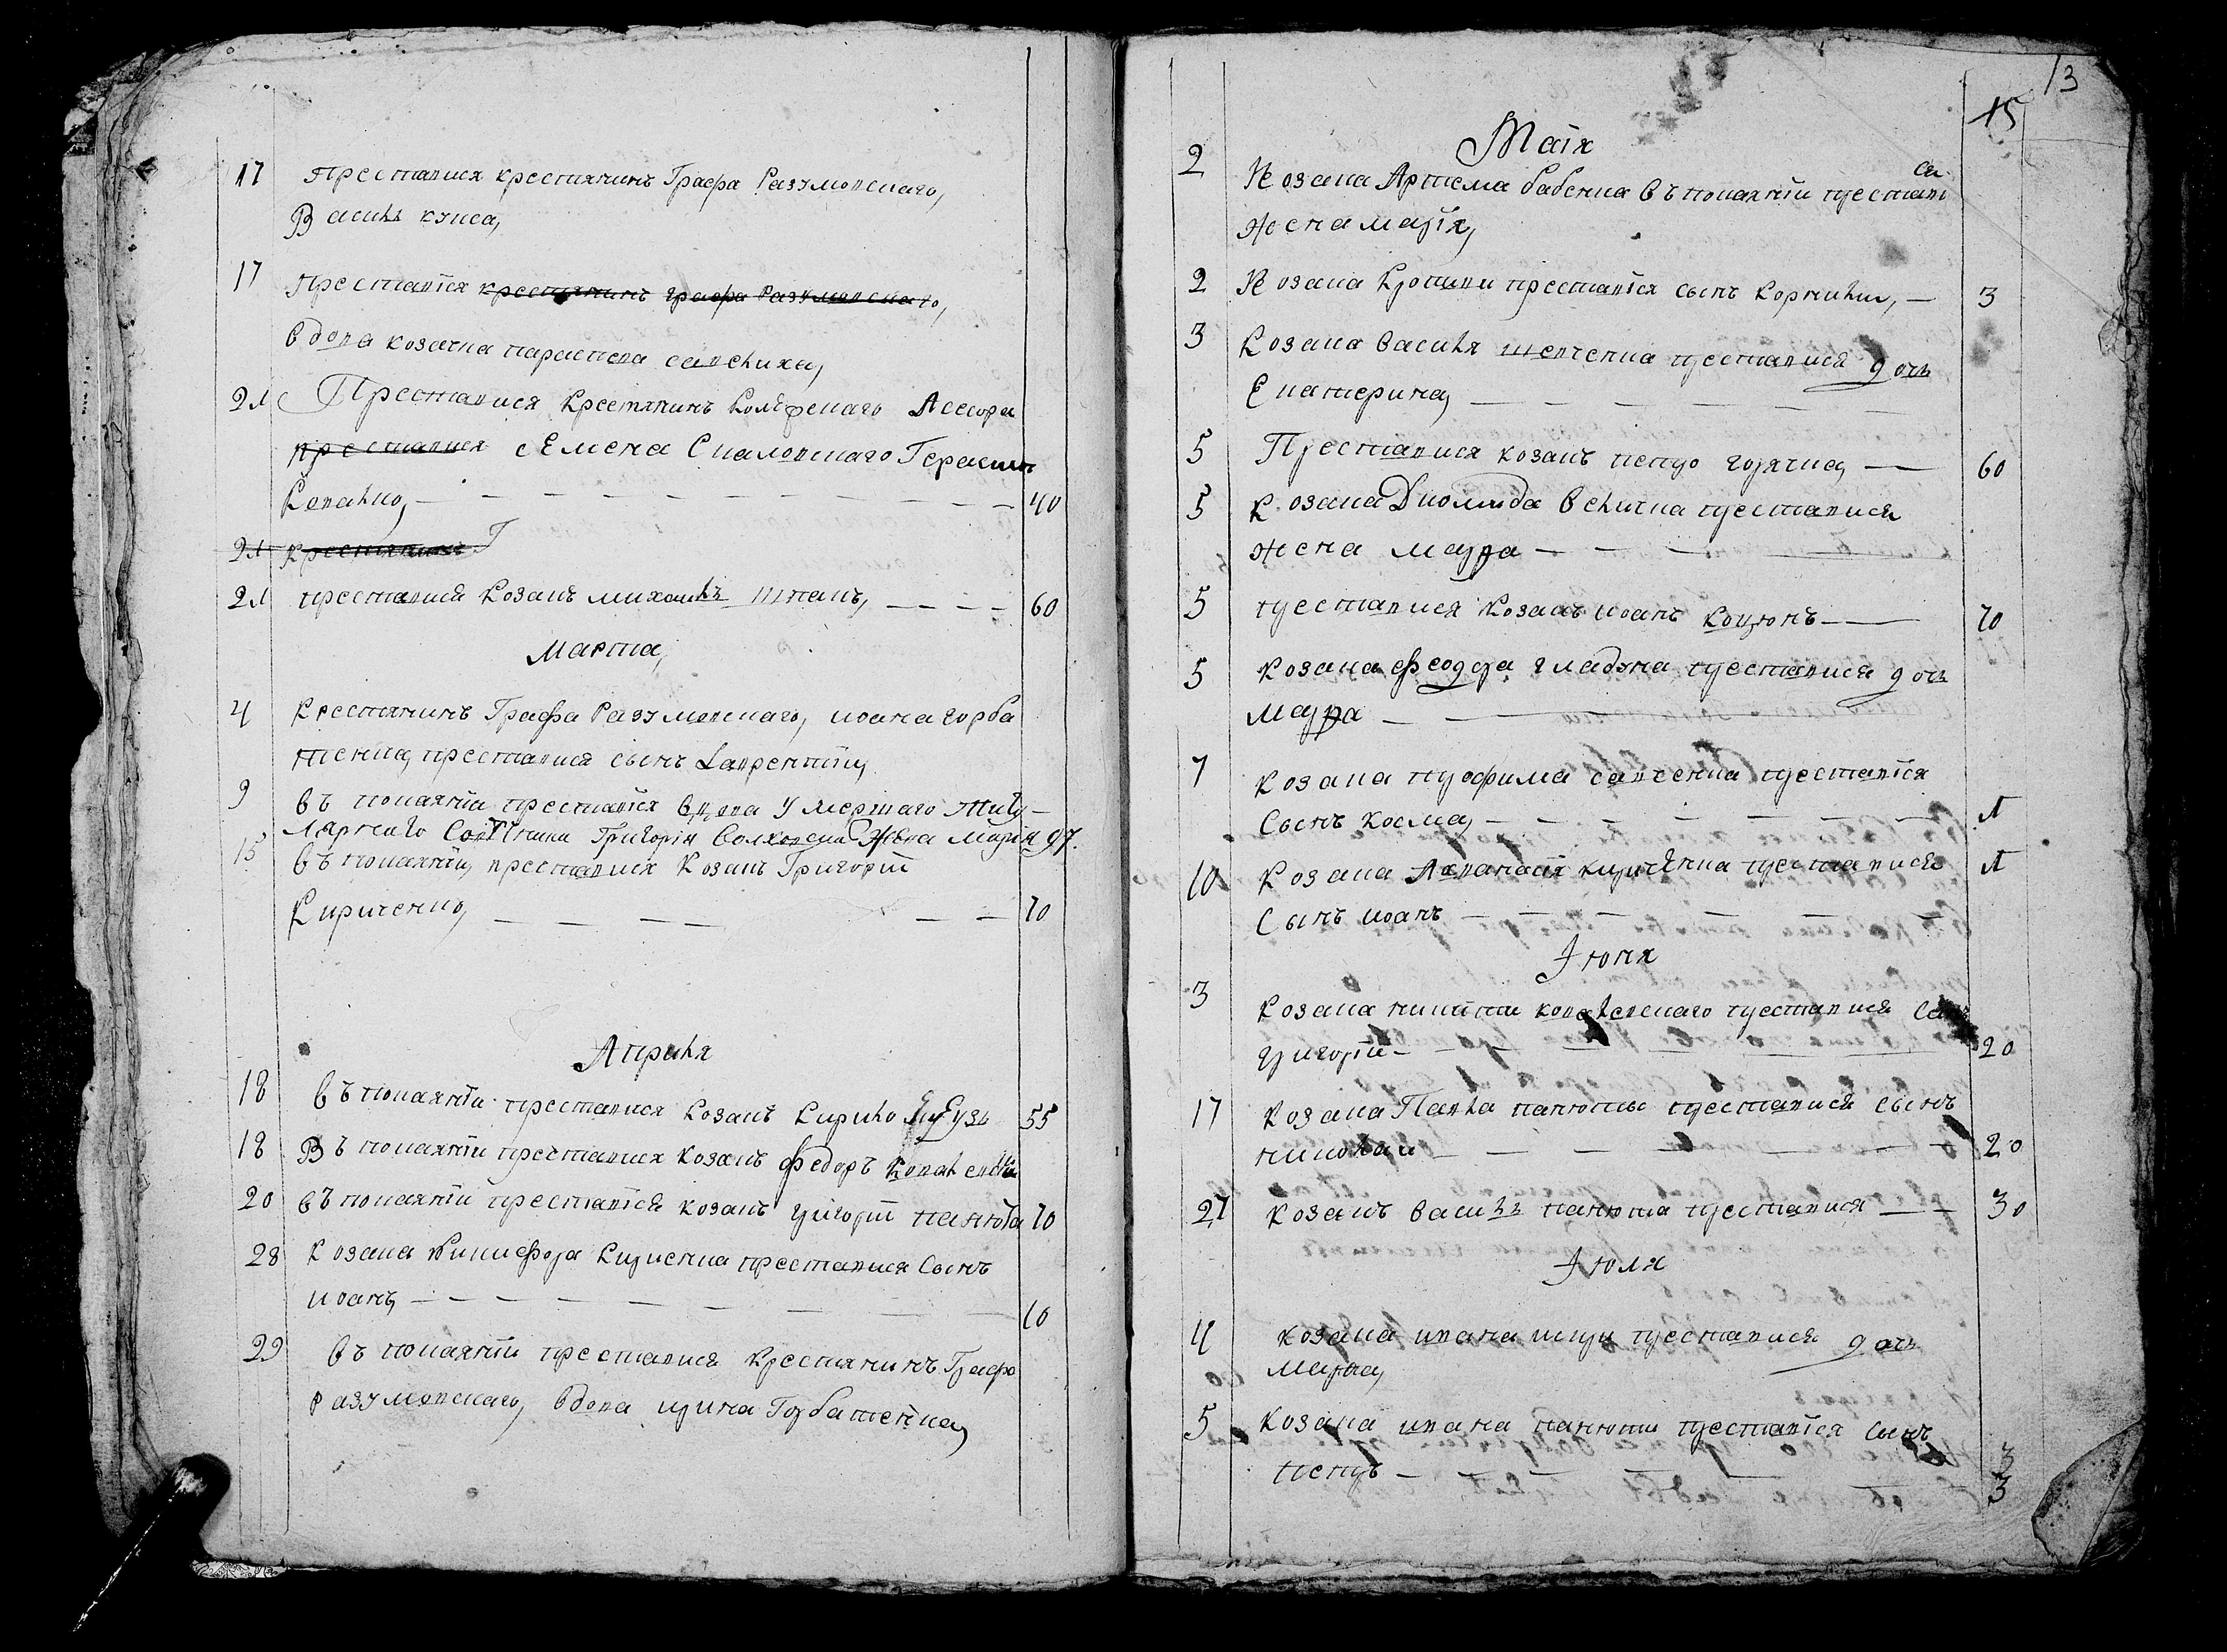 17 Преставися крестянинъ Графа Разумовскаго,
Василь куца,
17 Преставїся крестянинъ графа Разумовскаго,
вдова козачка параскева савелиха,
21 Преставися крестянинъ Асесора
преставися сЕмена Скаловскаго Герасим
Ковалко, 40
21 Крестянинъ Г
21 преставися козакъ михаилъ шпакъ, 60
Марта,
4 Крестянинъ Графа Разумовскаго, иоана горба
тенка, преставися сынъ Лаврентїи,
9 въ покаянїи преставїся вдова умершаго титу-
лярнаго Григорїя жена Марїя 97.
15 въ покаянїи, преставися Козакъ Григорїи
Кириченко, 70
Априля
18 въ покаянїи преставися козакъ Кирило 55
18 Въ покаянїи преставися козакъ федоръ
20 въ покаянїи преставїся козакъ григорїи панюта 70
28 Козака Никифора Кириченка преставися сынъ
иоанъ, 10
29 въ покаянїи преставися крестянинъ Графа
Разумовскаго, вдова ирина Горбатенка,
13
15
Маїя
2 Козака Артема бабенка въ покаянїи престави
ся
жена марїя,
2 Козака преставїся сынъ Корнилїи, 3
3 Козака василя шевченка преставися дочь
Екатерина,
5 Преставися козакъ петро горячка, 60
5 Козака Диомида величка преставися
жена мавра
5 преставися козакъ иоанъ 70
5 козака феодора гладкиа преставися дочь
мавра
7 козака трофима савченка преставїся
сынъ косма, 1
10 Козака Афанасїя кириченка преставися 1
сынъ иоанъ
Iюня
3 Козака никиты ковалевскаго преставися сынъ
григорїи 20
17 козака Павла панюты преставися сынъ
николаи 20
27 козакъ василь панюта преставися 30
Iюля
4 козака ивана преставися дочь
марѳа,
5 козака ивана панюты преставїся сынъ
петръ 3
3